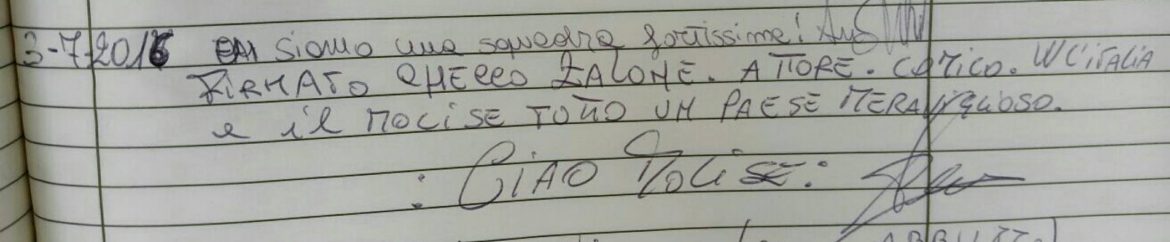 3-7-2016 siamo una squadra fortissima!
FIRMATO CHECCO ZALONE. ATTORE. COMICO. W L'ITALIA
e il MOLISE TUTTO UN PAESE MERAVIGLIOSO.
: CIAO MOLISE: